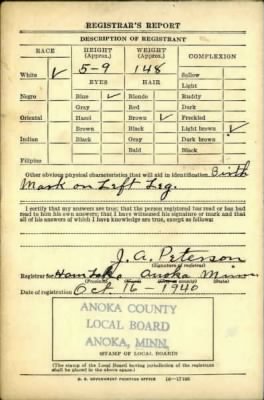 REGISTRAR'S REPORT
DESCRIPTION OF REGISTRANT
RACE HEIGHT (Approx.) WEIGHT (Approx.) COMPLEXION
White ✓ 5-9 148 Sallow
EYES HAIR Light
Negro Blue ✓ Blonde Ruddy
Gray Red Dark
Oriental Hazel Brown ✓ Freckled
Brown Black Light brown ✓
Indian Black Gray Dark brown
Bald Black
Filipino
Other obvious physical characteristics that will aid in identification Birth
Mark on Left Leg.
I certify that my answers are true; that the person registered has read or has had
read to him his own answers; that I have witnessed his signature or mark and that
all of his answers of which I have knowledge are true, except as follows:
J. A. Peterson
(Signature of registrar)
Registrar for Ham Lake Anoka Minn
(Precinct) (State)
Date of registration Oct 16 - 1940
ANOKA COUNTY
LOCAL BOARD
ANOKA, MINN.
(STAMP OF LOCAL BOARD)
(The stamp of the Local Board having jurisdiction of the registrant
shall be placed in the above space.)
U. S. GOVERNMENT PRINTING OFFICE